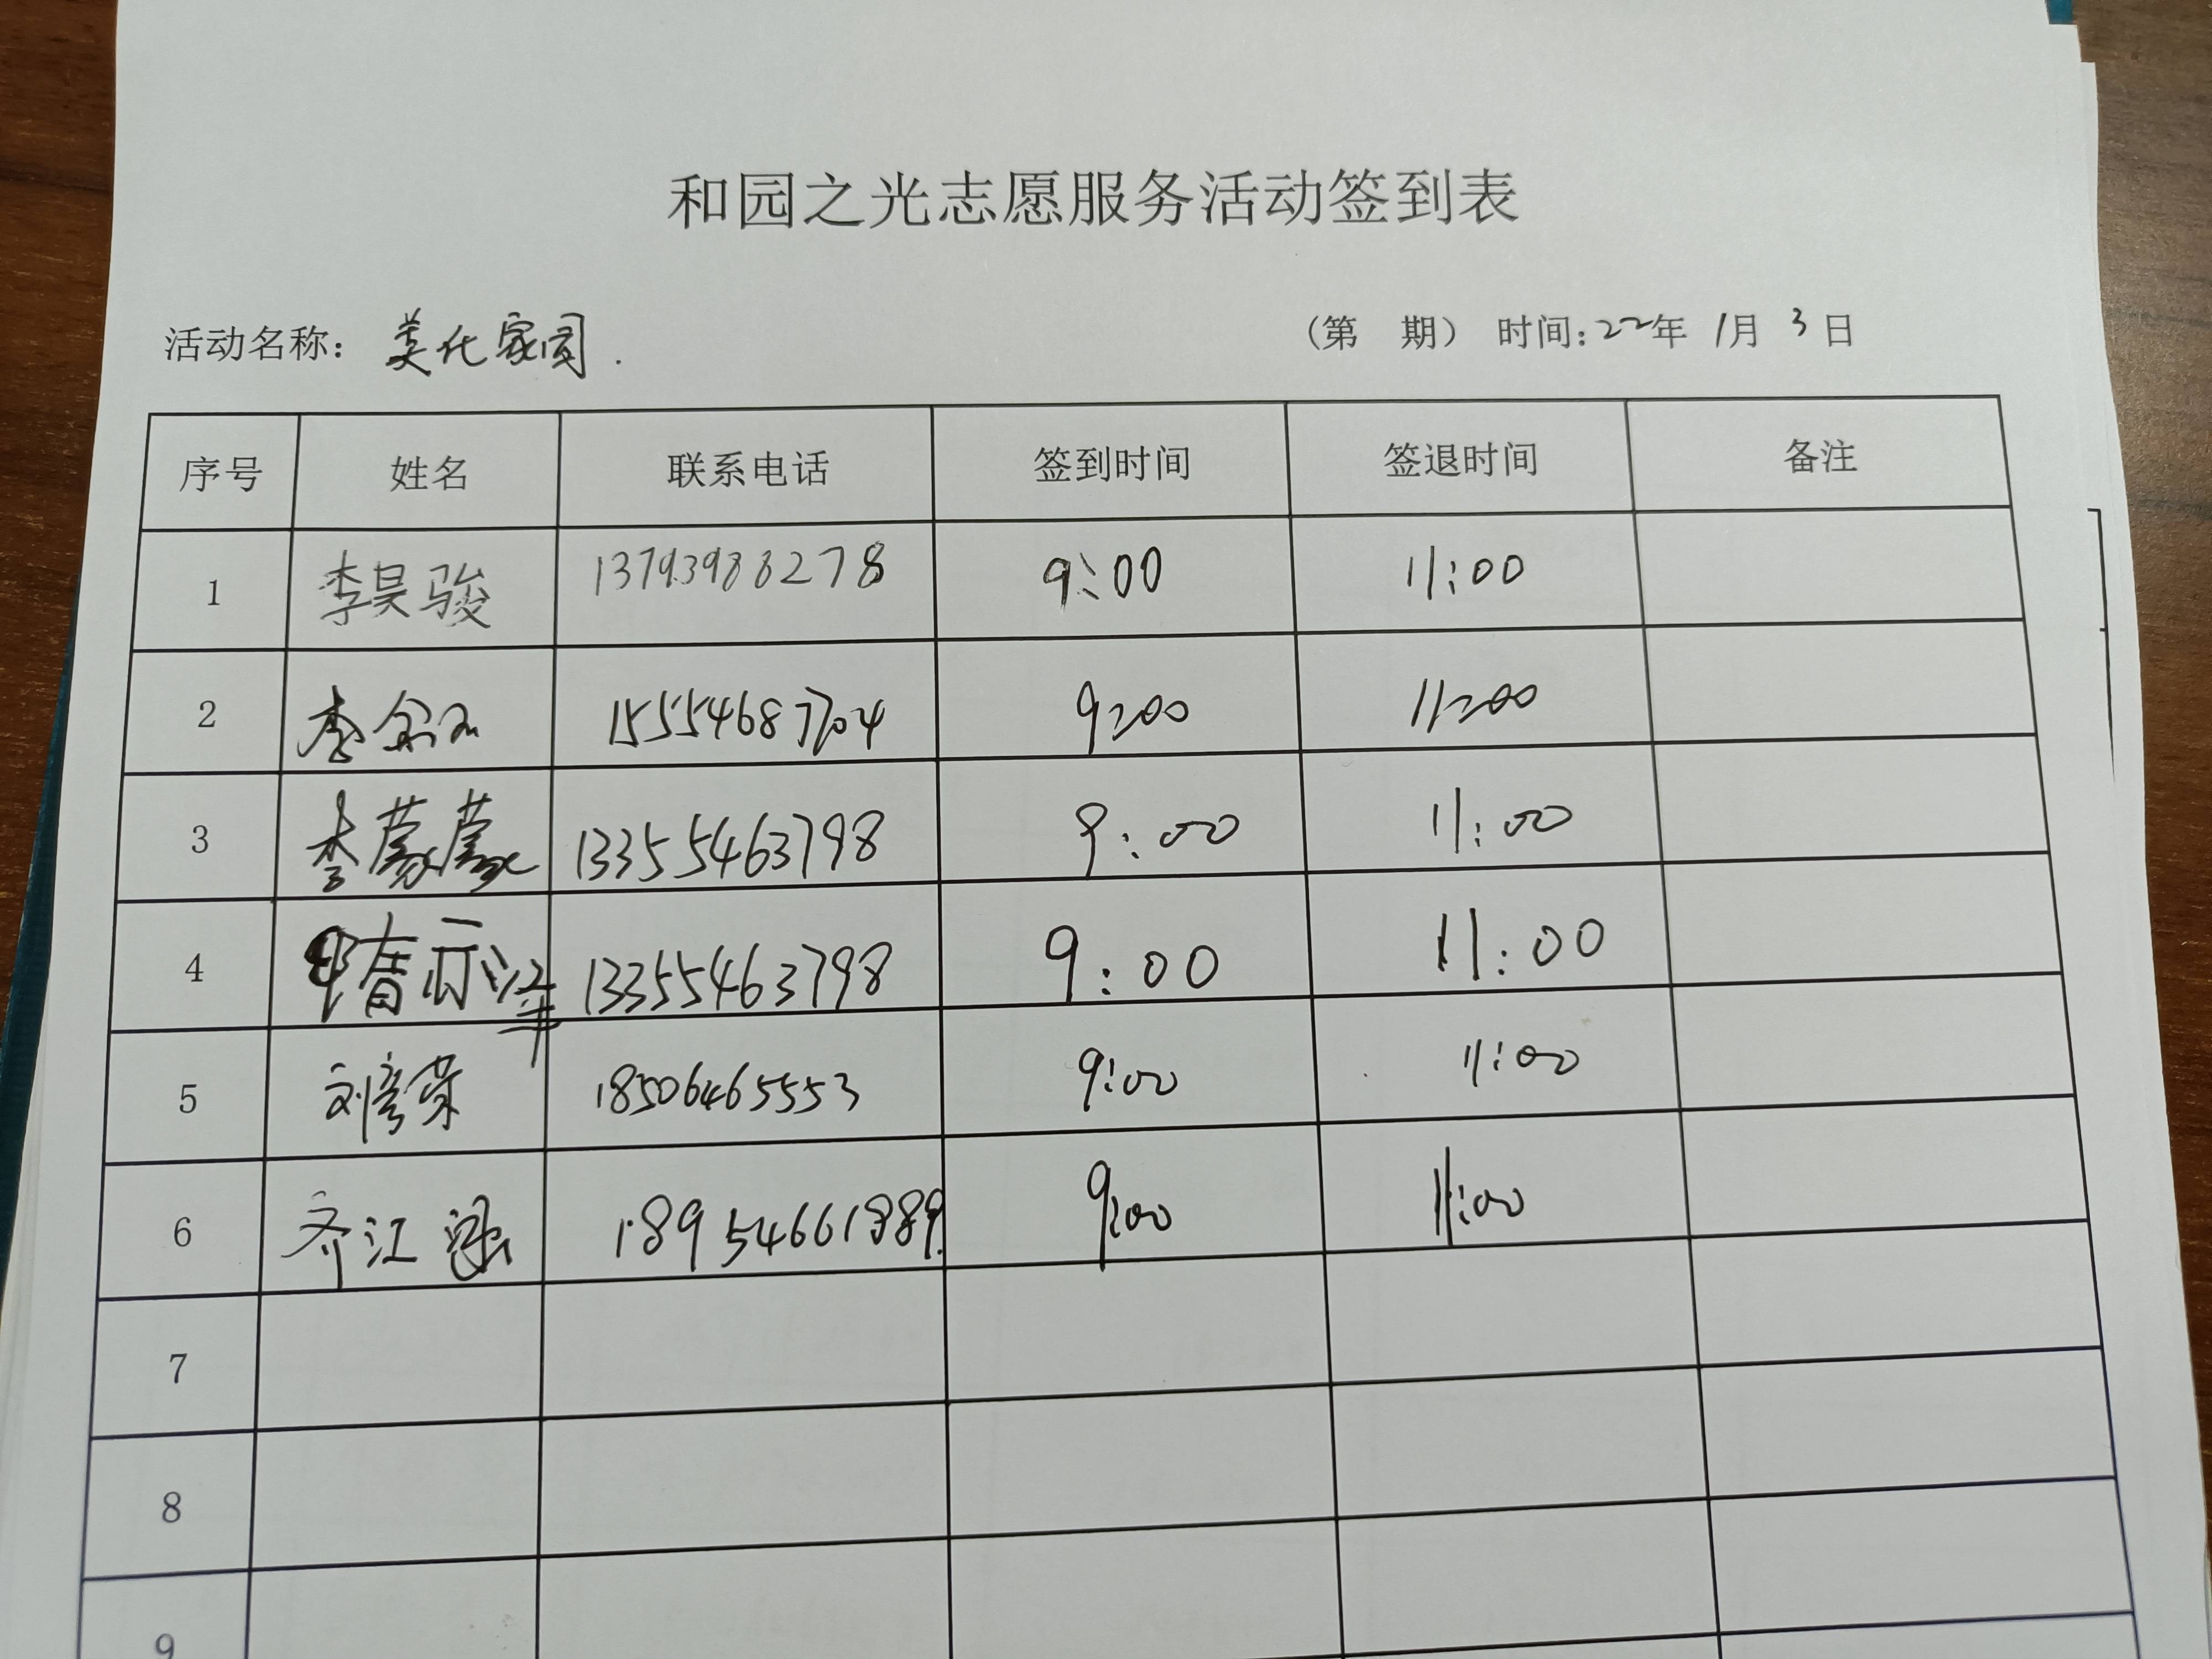 和园之光志愿服务活动签到表
活动名称：美化家园. （第 期） 时间:22年 1月 3日
序号 姓名 联系电话 签到时间 签退时间 备注
1 李昊骏 13793988278 9:00 11:00
2 李 15554687704 9:00 11:00
3 李蒙蒙 13355463798 9:00 11:00
4 13355463798 9:00 11:00
5 刘彦荣 18506465553 9:00 11:00
6 齐江涵 18954661989 9:00 11:00
7
8
9